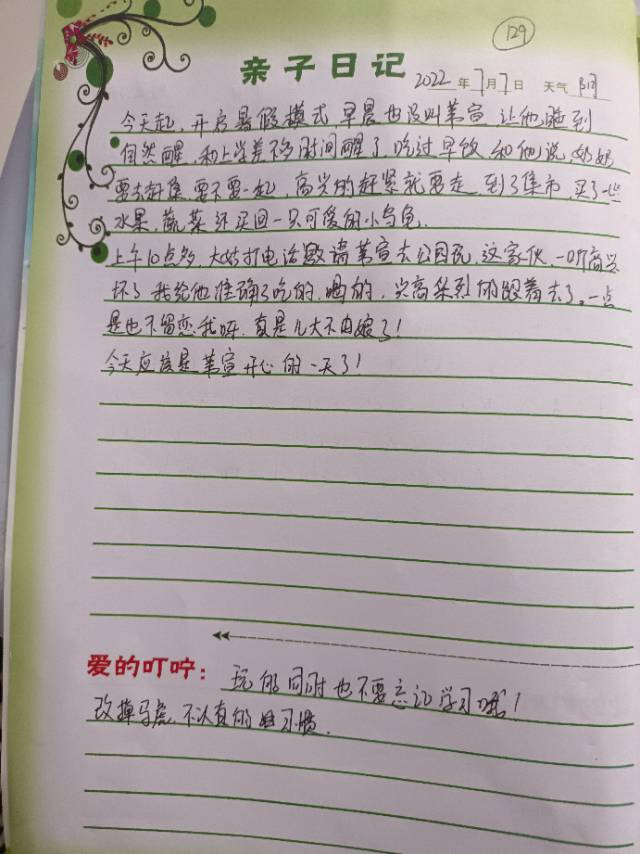 129
亲子日记 2022年7月7日 天气 阴
今天起，开启暑假模式，早晨也没叫第宣，让他睡到
自然醒，和上学差不多时间醒了，吃过早饭，和他说，奶奶
要去赶集，要不要一起，高兴的赶紧就要走，到了集市，买了一些
水果，蔬菜还买回一只可爱的小乌龟.
上午10点多，大姑打电话邀请第宣去公园玩，这家伙，一听高兴
坏了，我给他准确了吃的，喝的，兴高采烈的跟着去了。一点
是也不留恋我呀，真是儿大不由娘了！
今天应该是第宣开心的一天了！
爱的叮咛：玩的同时也不要忘记学习哦！
改掉马虎，不认真的坏习惯.